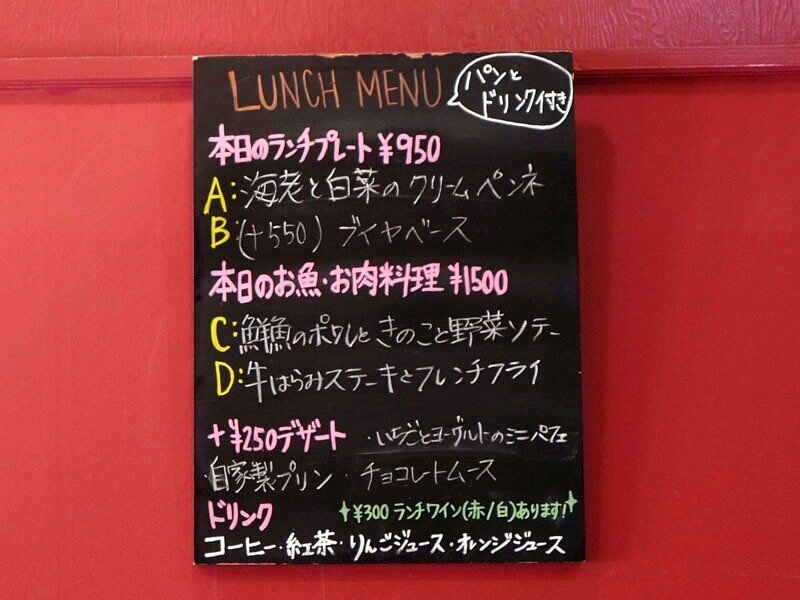 LUNCH MENU
パンと
ドリンク付き
本日のランチプレート ¥950
A:海老と白菜のクリームペンネ
B:(+550) ブイヤベース
本日のお魚・お肉料理 ¥1500
C:鮮魚のポワレときのこと野菜ソテー
D:牛はらみステーキとフレンチフライ
+¥250デザート ・いちごとヨーグルトのミニパフェ
・自家製プリン ・チョコレートムース
ドリンク ¥300 ランチワイン(赤/白)あります!
コーヒー・紅茶・りんごジュース・オレンジジュース